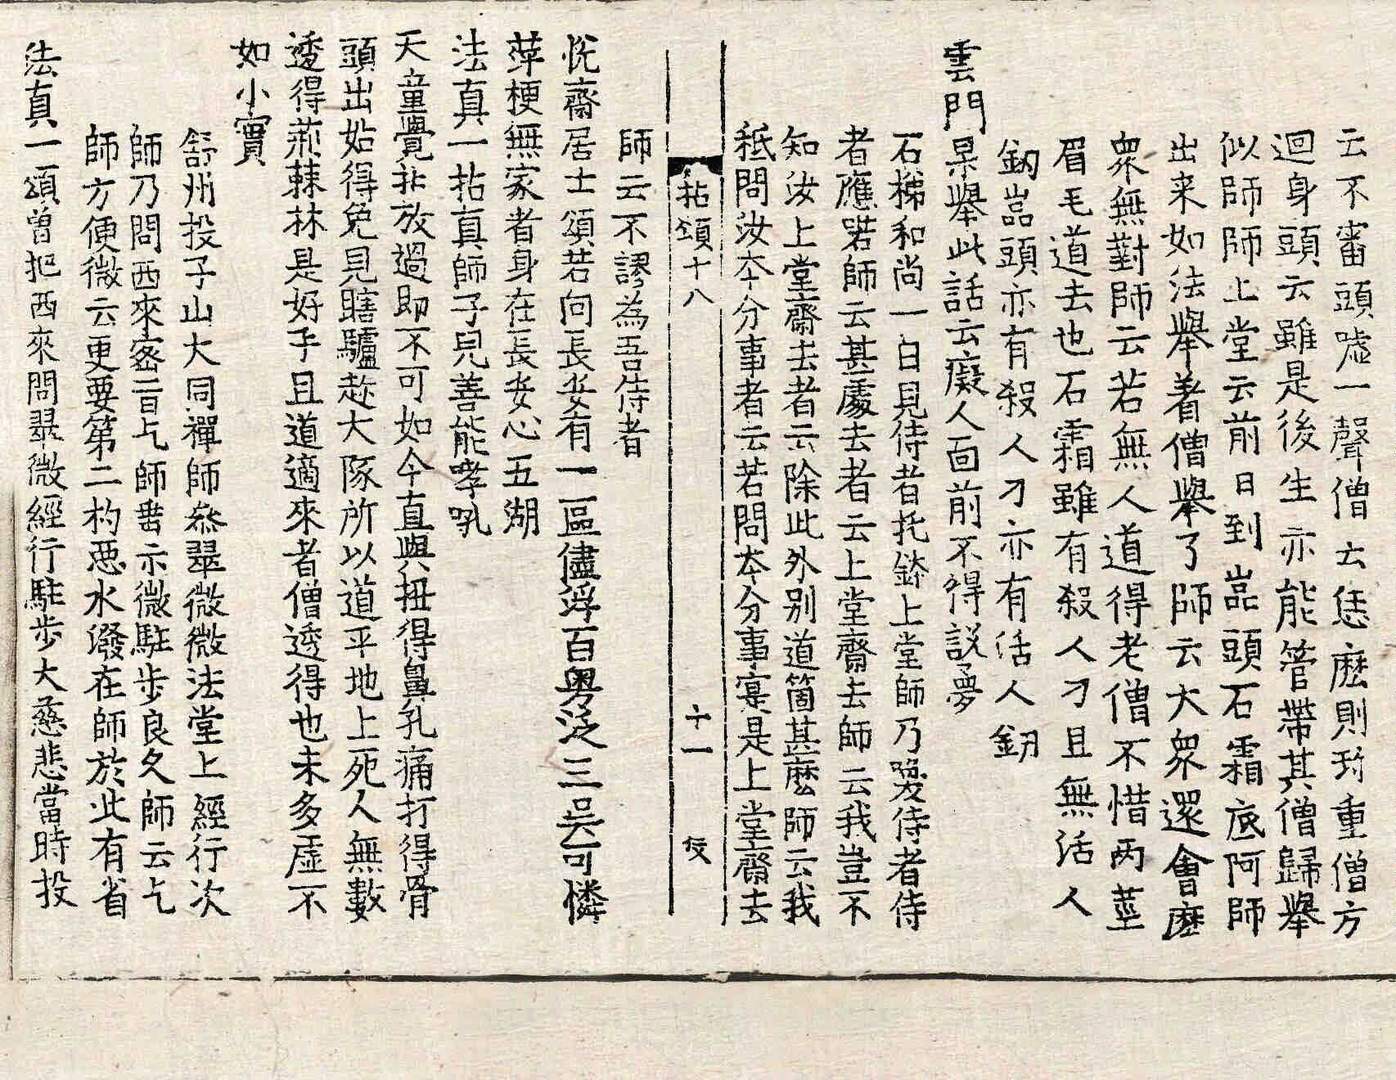 云不審頭噓一聲僧云恁麽則珎重僧方
迴身頭云雖是後生亦能管帶其僧歸舉
似師師上堂云前日到嵓頭石霜底阿師
出来如法舉著僧舉了師云大衆還會麽
衆無對師云若無人道得老僧不惜兩莖
眉毛道去也石霜雖有殺人刀且無活人
釰嵓頭亦有殺人刀亦有活人釰
雲門杲舉此話云癡人面前不得説夢
石梯和尚一日見侍者托鉢上堂師乃喚侍者侍
者應喏師云甚處去者云上堂齋去師云我豈不
知汝上堂齋去者云除此外別道箇甚麽師云我
秪問汝夲分事者云若問夲分事寔是上堂齋去
拈頌十八
十一
師云不謬為吾侍者
悅齋居士頌若向長安有一區儘浮百粤泛三吳可憐
萍梗無家者身在長安心五湖
法真一拈真師子皃善能哮吼
天童覺拈放過即不可如今直與扭得鼻孔痛打得骨
頭出始得免見瞎驢趂大隊所以道平地上死人無數
透得荊棘林是好手且道適來者僧透得也未多虛不
如小實
舒州投子山大同禪師叅翠微微法堂上經行次
師乃問西來宻旨乞師垂示微駐步良久師云乞
師方便微云更要第二杓惡水潑在師於此有省
法真一頌曾把西來問翠微經行駐步大慈悲當時投